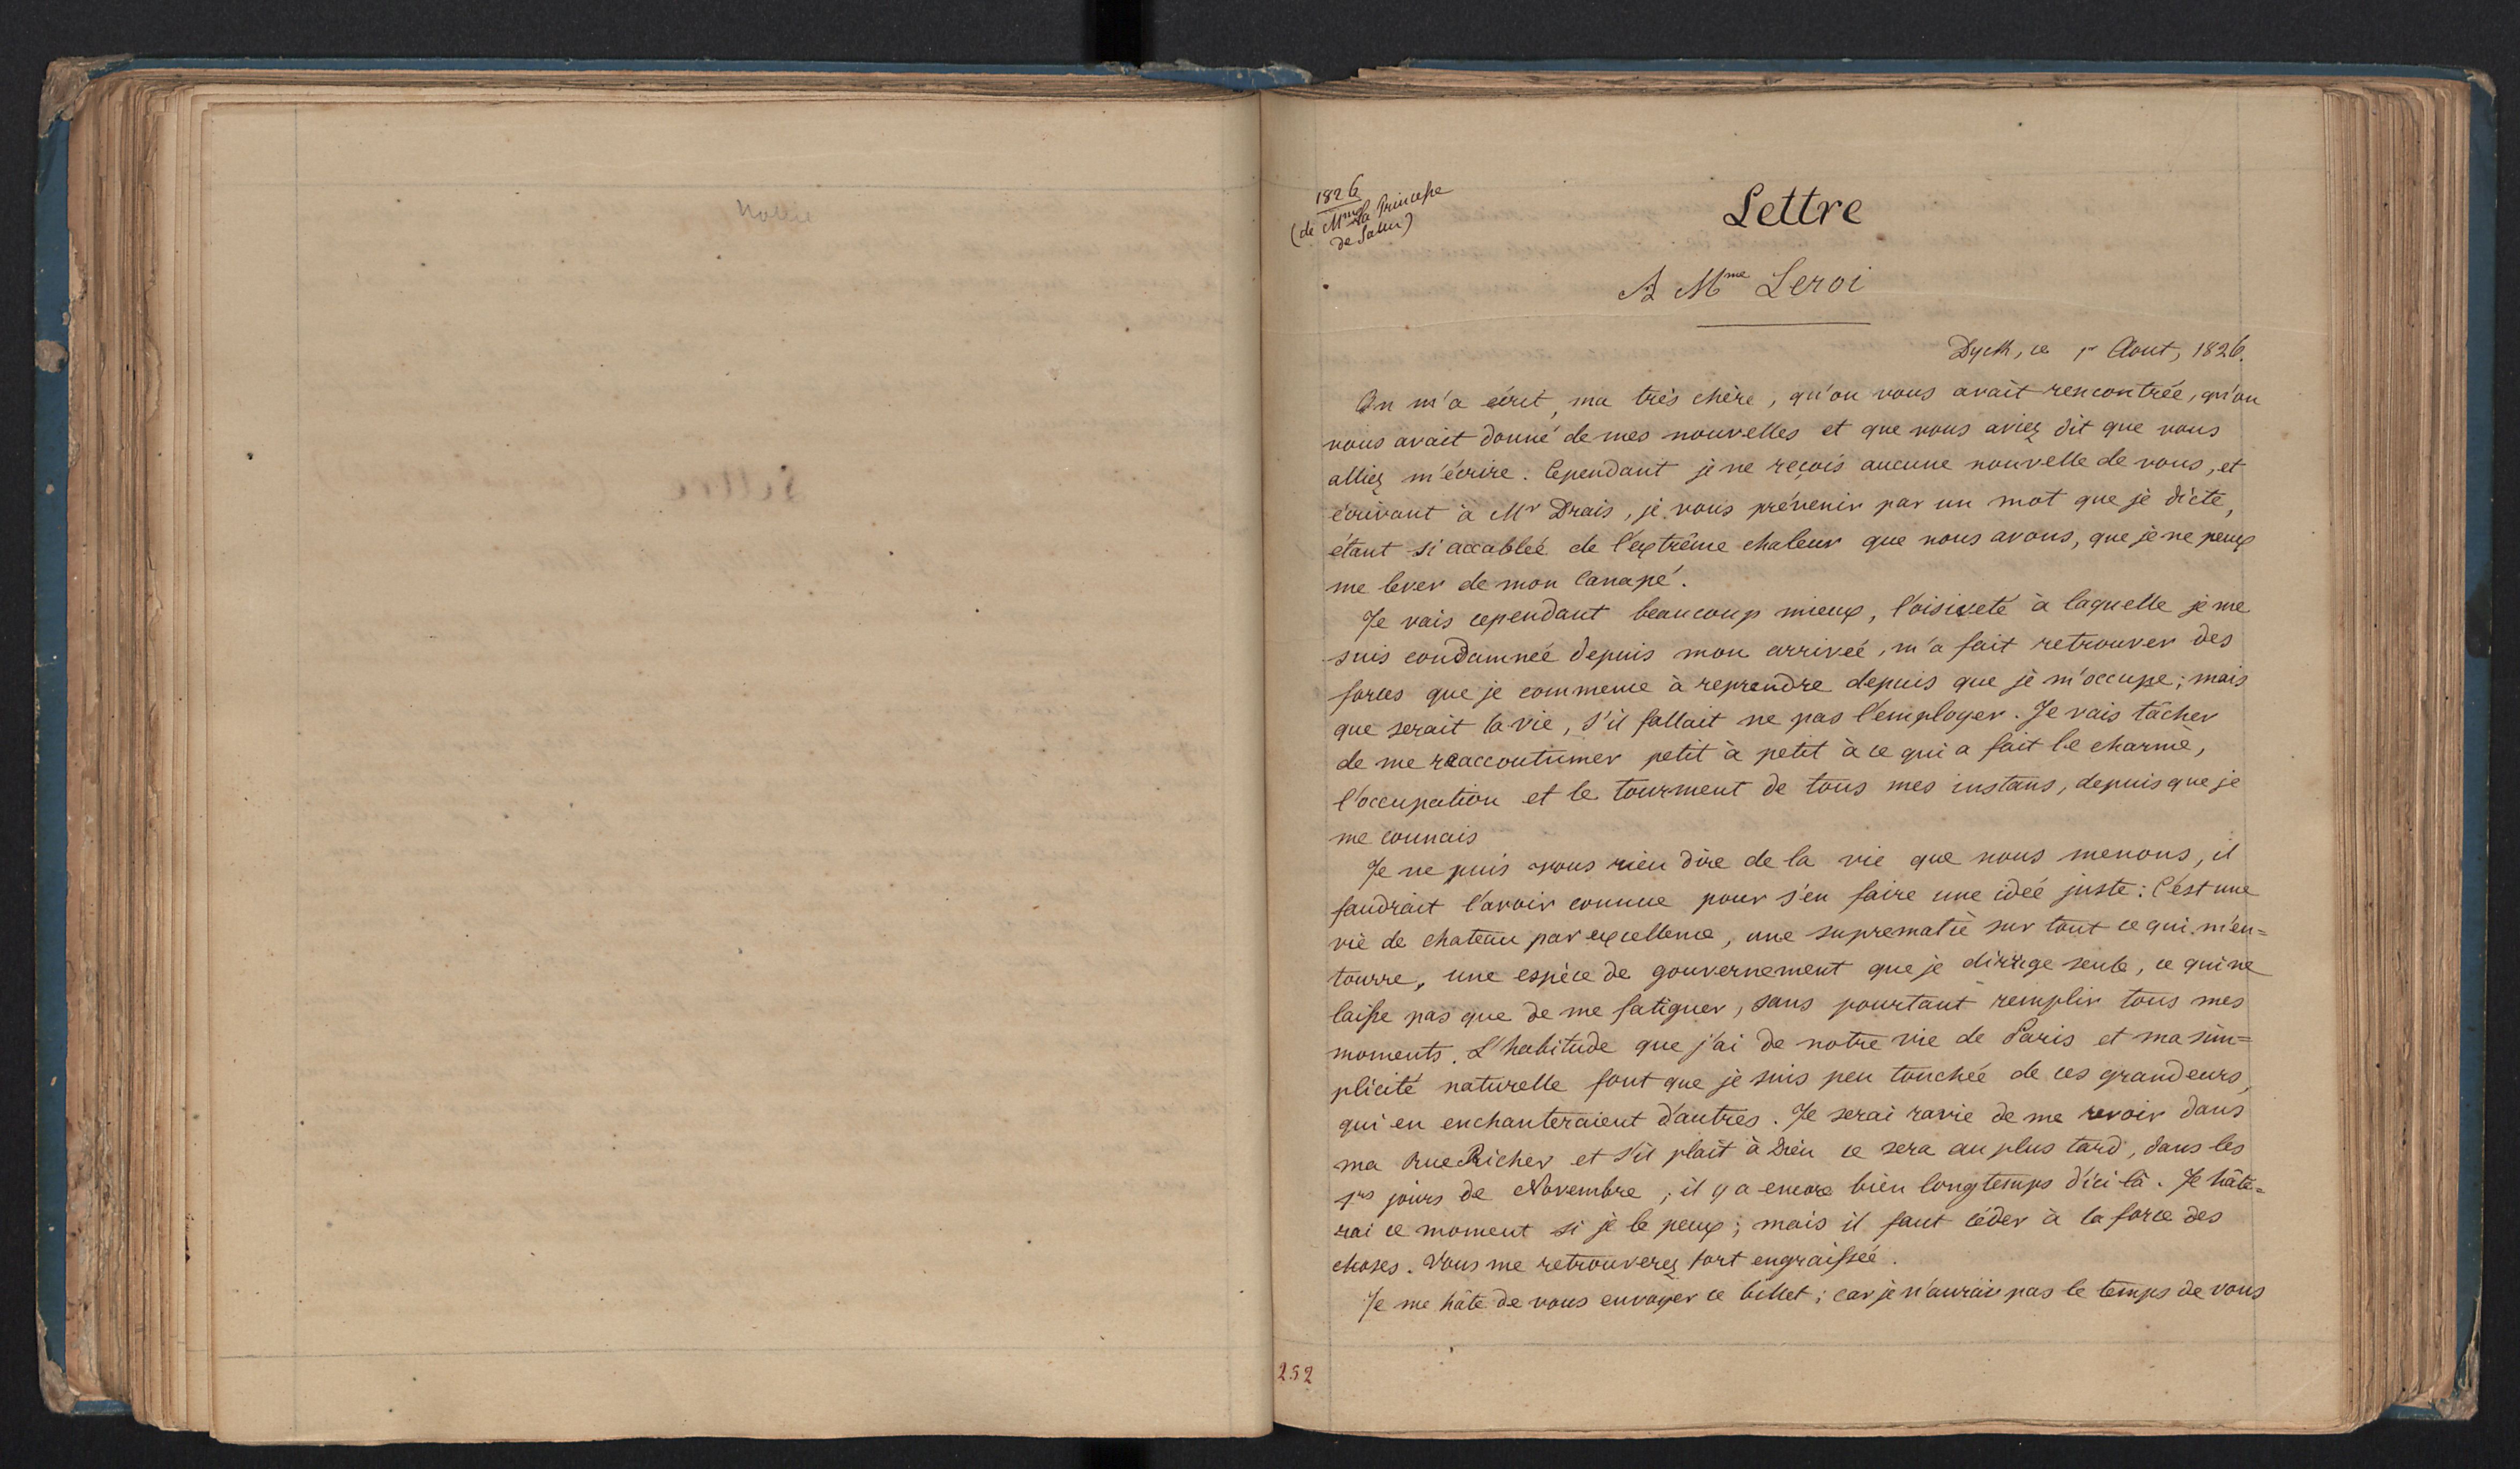 1826
(de Mme la Princesse
de Salm)
Lettre
A Mme Leroi
Dyck, ce 1r Aout, 1826.
On m'a écrit, ma très chère, qu'on vous avait rencontrée, qu'on
vous avait donné de mes nouvelles et que vous aviez dit que vous
alliez m'écrire. Cependant je ne reçois aucune nouvelle de vous, et
écrivant à Mr Drais, je vous prévenir par un mot que je dicte,
étant si accablée de l'extrême chaleur que nous avons, que je ne peux
me lever de mon Canapé.
Je vais cependant beaucoup mieux, l'oisiveté à laquelle je me
suis condamnée depuis mon arrivée, m'a fait retrouver des
forces que je commence à reprendre depuis que je m'occupe; mais
que serait la vie, s'il fallait ne pas l'employer. Je vais tâcher
de me réaccoutumer petit à petit à ce qui a fait le charme,
l'occupation et le tourment de tous mes instans, depuis que je
me connais
Je ne puis vous rien dire de la vie que nous menons, il
faudrait l'avoir connue pour s'en faire une idée juste: C'est une
vie de chateau par excellence, une suprematie sur tout ce qui m'en=
tourre, une espèce de gouvernement que je dirrige seule, ce qui ne
laisse pas que de me fatiguer, sans pourtant remplir tous mes
moments. L'habitude que j'ai de notre vie de Paris et ma sim=
plicité naturelle font que je suis peu touchée de ces grandeurs,
qui en enchanteraient d'autres. Je serai ravie de me revoir dans
ma Rue Richer et s'il plaît à Dieu ce sera au plus tard, dans les
1rs jours de Novembre; il y a encore bien longtemps d'ici là. Je hâte=
rai ce moment si je le peux; mais il faut céder à la force des
choses. Vous me retrouverez fort engraissée.
Je me hâte de vous envoyer ce billet; car je n'aurais pas le temps de vous
252